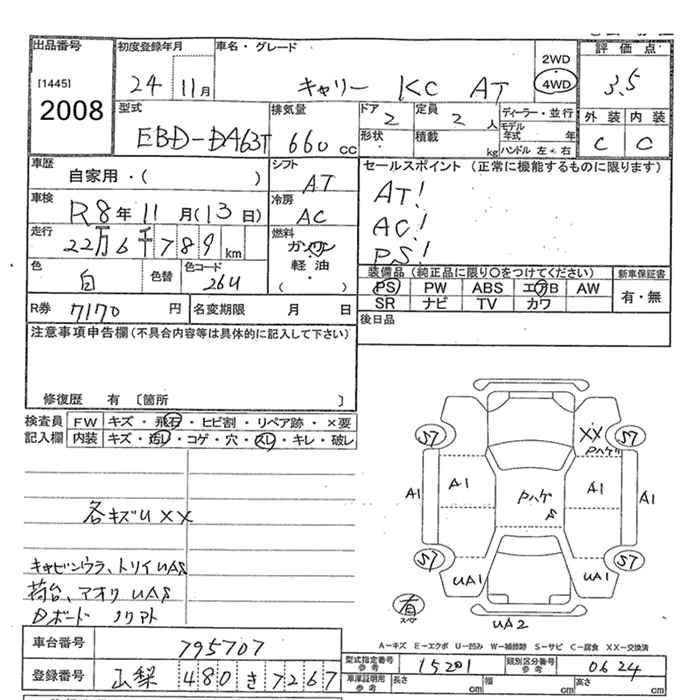 出品番号 初度登録年月 車名・グレード 2WD 評価点
[1445] 24 11月 キャリー KC AT 4WD 3.5
2008 型式 排気量 ドア 2 定員 2人 ディーラー・並行 外装 内装
EBD-DA63T 660 cc 形状 積載 kg モデル年式 年 C C
ハンドル 左・右
車歴 自家用・( ) シフト AT セールスポイント (正常に機能するものに限ります)
車検 R8年11月(13日) 冷房 AC AT!
走行 22万6千789km 燃料 ガソリン AC!
軽油 PS!
色 白 色替 色コード 26U ( ) 装備品 (純正品に限り○をつけてください) 新車保証書
PS PW ABS エアB AW 有・無
SR ナビ TV カワ
R券 7170円 名変期限 月 日 後日品
注意事項申告欄(不具合内容等は具体的に記入して下さい)
修復歴 有 〔箇所 〕
検査員 FW キズ・飛石・ヒビ割・リペア跡・×要
記入欄 内装 キズ・汚レ・コゲ・穴・スレ・キレ・破レ
S7 XX S7
Pハゲ
A1 A1 Pハゲ A1 A1
S7 S7
UA1 UA1
有 スペア UA2
各キズU XX
キャビンウラ、トリイUAS
荷台、アオリUAS
Dボード
A-キズ E-エクボ U-凹み W-補修跡 S-サビ C-腐食 XX-交換済
車台番号 795707 型式指定番号 参考 15201 類別区分番号 参考 0624
登録番号 山梨 480 き 7267 車庫証明用 参考 長さ cm 幅 cm 高さ cm